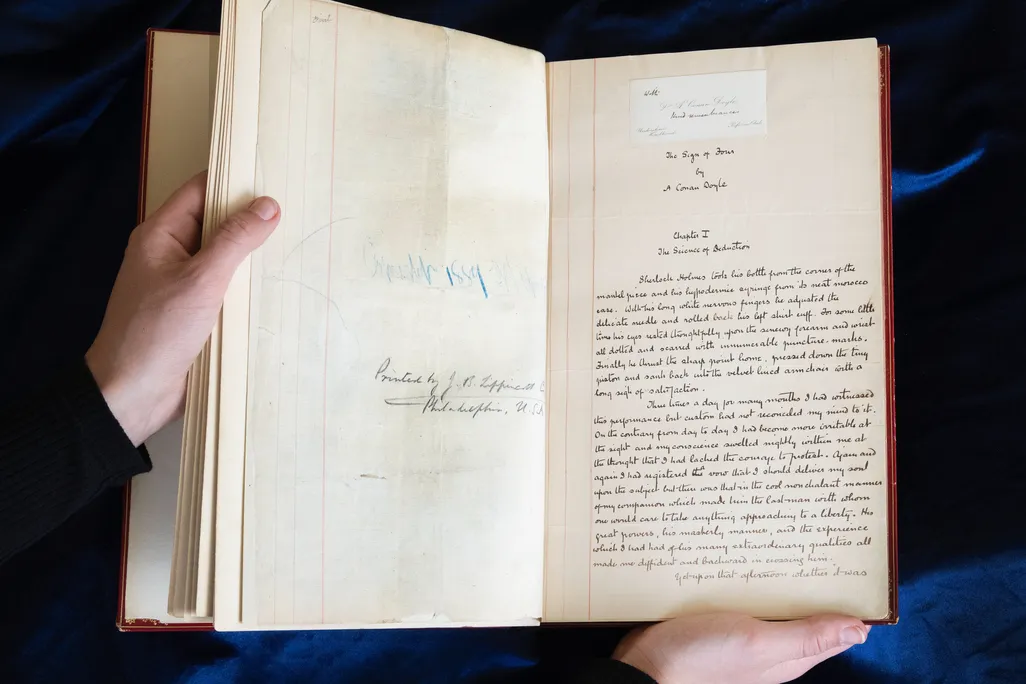 Printed by J. B. Lippincott
Philadelphia, U.S.A
With
Dr A. Conan Doyle
kind remembrances
The Sign of Four
by
A Conan Doyle
Chapter I
The Science of Deduction
Sherlock Holmes took his bottle from the corner of the
mantel piece and his hypodermic syringe from its neat morocco
case. With his long white nervous fingers he adjusted the
delicate needle and rolled back his left shirt cuff. For some little
time his eyes rested thoughtfully upon the sinewy forearm and wrist
all dotted and scarred with innumerable puncture-marks.
Finally he thrust the sharp point home, pressed down the tiny
piston and sank back into the velvet lined armchair with a
long sigh of satisfaction.
Three times a day for many months I had witnessed
this performance but custom had not reconciled my mind to it.
On the contrary from day to day I had become more irritable at
the sight and my conscience swelled nightly within me at
the thought that I had lacked the courage to protest. Again and
again I had registered the vow that I should deliver my soul
upon the subject but there was that in the cool nonchalant manner
of my companion which made him the last man with whom
one would care to take anything approaching to a liberty. His
great powers, his masterly manner, and the experience
which I had had of his many extraordinary qualities all
made me diffident and backward in crossing him.
Yet upon that afternoon whether it was